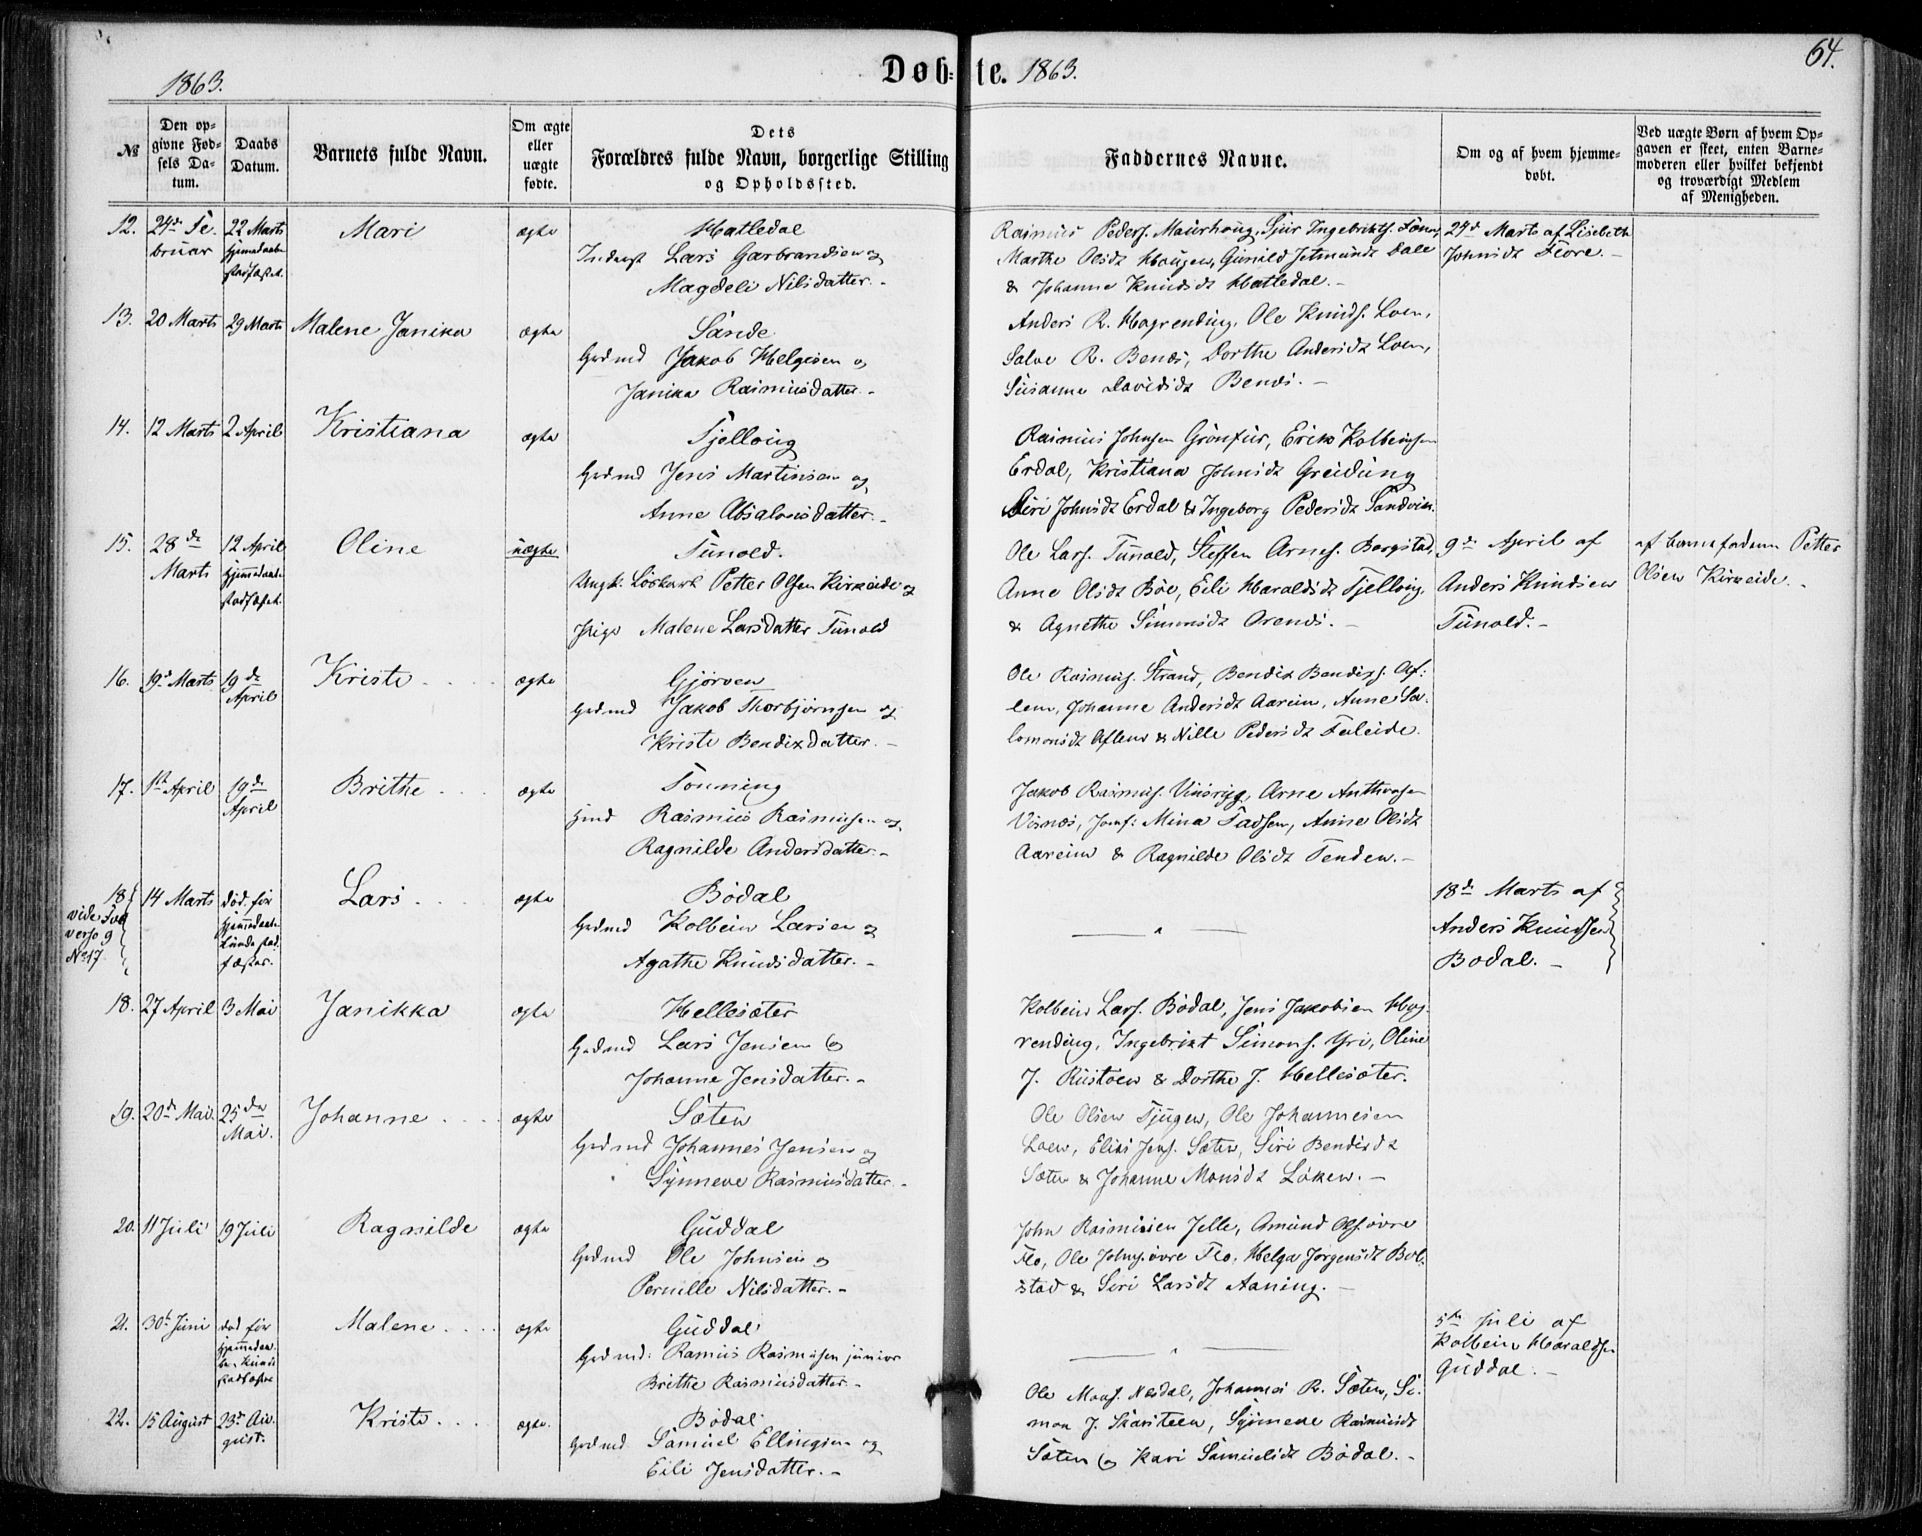 1863.
Døb-te. 1863.
64.
№
Den opgivne Fødsels Datum.
Daabs Datum.
Barnets fulde Navn.
Om ægte eller uægte fødte.
Dets
Forældres fulde Navn, borgerlige Stilling
og Opholdssted.
Faddernes Navne.
Om og af hvem hjemmedøbt.
Ved uægte Børn af hvem Opgaven er skeet, enten Barnemoderen eller hvilket bekjendt og troværdigt Medlem af Menigheden.
12. 24de Februar 22 Marts hjemmedaab stadfæstet. Mari ægte
Hatledal
Inderst Lars Garbrandsen og
Magdeli Nilsdatter.-
Rasmus Peders. Maurhoug, Sjur Ingebrikts.
Marthe Olsdt Haugen, Gunild Jetmundt Dale
& Johanne Knudsdt Hatledal.-
24de Marts af Lisebeth
Johnsdt Flore.-
13. 20 Marts 29 Marts Malene Janika ægte
Sande
Grdmd Jakob Helgesen og
Janika Rasmusdatter.-
Anders R. Hogrending, Ole Knuds. Loen,
Salve R. Benæs, Dorthe Andersdt Loen,
Susanne Davidsdt Benæs.-
14. 12 Marts 2 April Kristiana ægte
Tjelloug
Grdmd Jens Martinsen og
Anne Absalonsdatter.-
Rasmus Johnsen Grønfur, Erik Kolbeinsen
Erdal, Kristiana Johnsdt Greidung
Siri Johnsdt Erdal & Ingeborg Pedersdt Sandvik.
15. 28de Marts 12 April hjemmedaab stadfæstet. Oline uægte
Tunold.
Ungk. Løskarl Petter Olsen Kirkeide og
Pige Malene Larsdatter Tunold
Ole Lars. Tunold, Steffen Arnes. Bergstad,
Anne Olsdt Böe, Eili Haraldsdt Tjelloug,
& Agnethe Simonsdt Arenæs.-
9de April af
Anders Knudsen
Tunold.-
af barnefaderen Petter
Olsen Kirkeide.-
16. 19de Marts 19de April Kristi ægte
Gjørven
Grdmd Jakob Thorbjørnsen og
Kristi Bendixdatter.-
Ole Rasmus. Strand, Bendix Bendixs. Af-
lem, Johanne Andersdt Aareim, Anne Sa-
lomonsdt Aflem & Nille Pedersdt Faleide.
17. 1ste April 19de April Brithe ægte
Tonning
Hmd Rasmus Rasmusen og
Ragnilde Andersdatter.-
Jakob Rasmus. Vinsrygg, Arne Anthonsen
Visnæs, Jomf: Mina Tadsen, Anne Olsdt
Aareim & Ragnilde Olsdt Tenden.-
18 vide Fol verso 9 No 17 14 Marts død før hjemmedaab kunde stadfæstes. Lars ægte
Bødal
Grdmd Kolbein Larsen og
Agathe Knudsdatter.-
18de Marts af
Anders Knudsen
Bødal.-
18. 27 April 3 Mai Janikka ægte
Hellesæter
Grdmd Lars Jensen &
Johanne Jensdatter.-
Kolbein Lars. Bødal, Jens Jakobsen Hog-
rending, Ingebrikt Simons. Yri, Oline
J. Rustøen & Dorthe J. Hellesæter.
19. 20de Mai. 25de Mai. Johanne ægte
Sæten
Grdmd Johannes Jensen og
Synneve Rasmusdatter.-
Ole Olsen Tjugen, Ole Johannesen
Loen, Elias Jens. Sæten, Siri Bendixdt
Sæten & Johanne Monsdt Løken.-
20. 11 Juli 19 Juli Ragnilde ægte
Guddal
Grdmd Ole Johnsen og
Pernille Nilsdatter.-
John Rasmusen Jelle, Amund Ols. øvre
Flo, Ole Johns. øvre Flo, Helga Jørgensdt Bol-
stad & Siri Larsdt Aaning.-
21. 30te Juni død før hjemmedaab kunde stadfæstes Malene ægte
Guddal
Grdmd: Rasmus Rasmusen junior
Brithe Rasmusdatter.-
5te Juli af
Kolbein Haraldsen
Guddal.-
22. 15 August 23de August. Kristi ægte.
Bødal
Grdmd. Samuel Ellingsen og
Eili Jensdatter.-
Ole Mons. Nesdal, Johannes R. Sæten, Si-
mon J. Skaarsteen, Synneve Rasmusdt
Sæten & Kari Samuelsdt Bødal.-